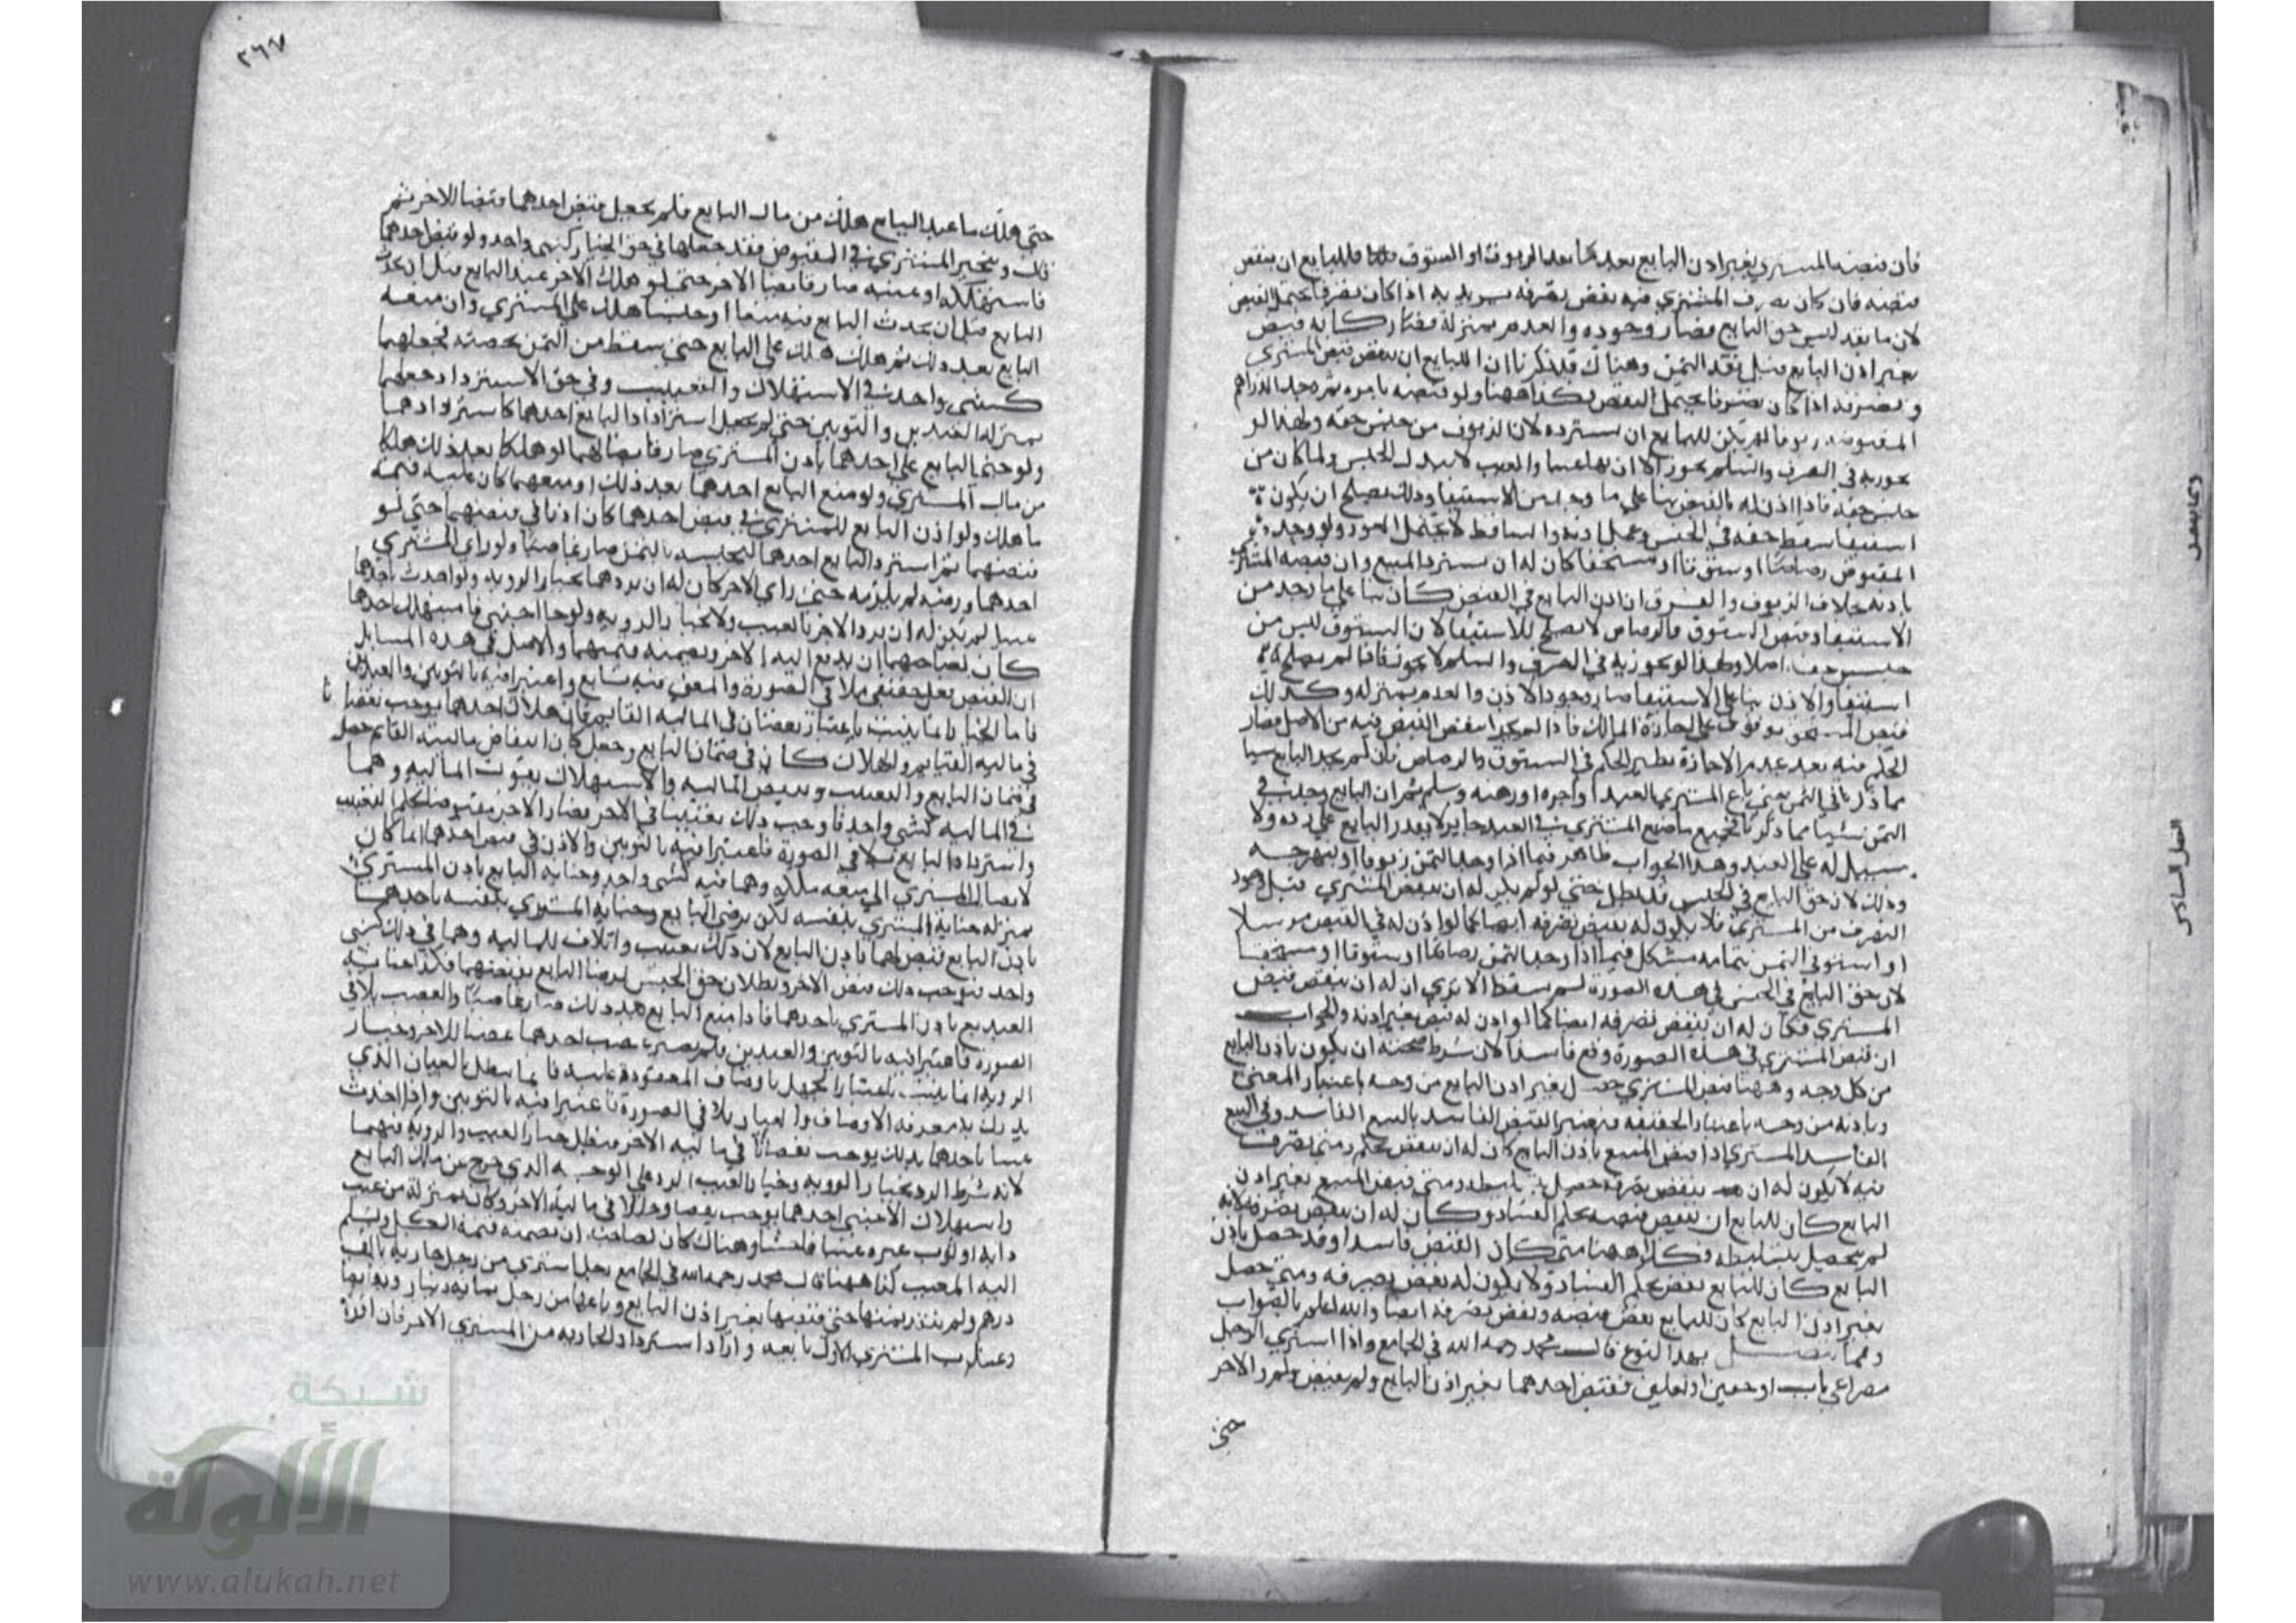 فان قبضه المشتري بغير اذن البايع بعد ما نقد الزيوف او الستوق فللبايع ان ينقض
قبضه فان كان تصرف المشتري فيه نقض تصرفه اذا كان تصرفا يحتمل النقض
لان ما نقد ليس حق البايع فصار وجوده والعدم بمنزلة فصار كانه قبض
بغير اذن البايع قبل نقد الثمن وهناك قد ذكرنا ان للبايع ان ينقض قبض المشتري
وتصرفه اذا كان تصرفا يحتمل النقض فكذا ههنا ولو قبضه بامره ثم وجد الدراهم
المقبوضة زيوفا لم يكن للبايع ان يسترده لان الزيوف من جنس حقه ولهذا لو
تجوز به في الصرف والسلم يجوز الا ان بها عيبا والعيب لا يبدل الجنس ولما كان من
جنس حقه فاذا اذن له بالقبض بنا على ما وجد من الاستيفا وذلك يصلح ان يكون
استيفا سقط حقه في الحبس وعمل اذنه والساقط لا يحتمل العود ولو وجد
المقبوض رصاصا او ستوقا او مستحقا كان له ان يسترد المبيع وان قبضه المشتري
باذنه بخلاف الزيوف والفرق ان اذن البايع في القبض كان بنا على ما وجد من
الاستيفا وقبض الستوق والرصاص لا يصلح للاستيفا لان الستوق ليس من
جنس حقه اصلا ولهذا لو تجوز به في الصرف والسلم لا يجوز فاذا لم يصلح
استيفا والاذن بنا على الاستيفا صار وجود الاذن والعدم بمنزلة وكذلك
قبض المستحق موقوف على اجازة المالك فاذا لم يجز انتقض القبض فيه من الاصل فصار
الحكم فيه بعد عدم الاجازة نظير الحكم في الستوق والرصاص فان لم يجد البايع شيا
مما ذكرنا في الثمن حتى باع المشتري العبد او اجره او رهنه وسلم ثم ان البايع وجد في
الثمن شيا مما ذكرنا فجميع ما صنع المشتري في العبد جايز لا يقدر البايع على رده ولا
سبيل له على العبد وهذا الجواب ظاهر فيما اذا وجد الثمن زيوفا او نبهرجة
وذلك لان حق البايع في الحبس قد بطل حتى لو لم يكن له ان ينقض المشتري قبل وجود
التصرف من المشتري فلا يكون له نقض تصرفه ايضا كما لو اذن له في القبض مرسلا
او استوفى الثمن بتمامه مشكل فيما اذا وجد الثمن رصاصا او ستوقا او مستحقا
لان حق البايع في الحبس في هذه الصورة لم يسقط الا ترى ان له ان ينقض قبض
المشتري فكان له ان ينقض تصرفه ايضا كما لو اذن له قبض بغير اذنه والجواب
ان قبض المشتري في هذه الصورة وقع فاسدا لان شرط صحته ان يكون باذن البايع
من كل وجه وههنا قبض المشتري حصل بغير اذن البايع من وجه باعتبار المعنى
وباذنه من وجه باعتبار الحقيقة فيعتبر القبض الفاسد بالبيع الفاسد وفي البيع
الفاسد المشتري اذا قبض المبيع باذن البايع كان له ان ينقض بحكم ومتى تصرف
فيه لا يكون له ان ينقض تصرفه حصل بتسليطه ومتى قبض المبيع بغير اذن
البايع كان للبايع ان ينقض قبضه بحكم الفساد وكان له ان ينقض تصرفه لانه
لم يحصل بتسليطه وكذا ههنا متى كان القبض فاسدا وقد حصل باذن
البايع كان للبايع نقض بحكم الفساد ولا يكون له نقض تصرفه ومتى حصل
بغير اذن البايع كان للبايع نقض قبضه ونقض تصرفه ايضا والله اعلم بالصواب
ومما يتصل بهذا النوع قال محمد رحمه الله في الجامع واذا اشترى الرجل
مصراعي باب او خفين او نعلين فقبض احدهما بغير اذن البايع ولم يقبض الاخر
حتى
٢٦٧
حتى هلك ما عند البايع هلك من مال البايع فلم يجعل قبض احدهما قبضا للاخر ثم
قال ويتخير المشتري في المقبوض فقد جعلهما في حق الخيار كشي واحد ولو قبض احدهما
فاستهلكه او عيبه صار قابضا الاخر حتى لو هلك الاخر عند البايع قبل ان يحدث
البايع قبل ان يحدث البايع فيه منعا او حبسا هلك على المشتري وان منعه
البايع بعد ذلك ثم هلك هلك على البايع حتى يسقط من الثمن بحصته فجعلهما
كشي واحد في الاستهلاك والتعييب وفي حق الاسترداد جعلهما
بمنزلة العبدين والثوبين حتى لم يجعل استرداد البايع احدهما كاستردادهما
ولو جنى البايع على احدهما باذن المشتري صار قابضا لهما لو هلكا بعد ذلك هلكا
من مال المشتري ولو منع البايع احدهما بعد ذلك او منعهما كان عليه قيمة
ما هلك ولو اذن البايع للمشتري في قبض احدهما كان اذنا في قبضهما حتى لو
قبضهما ثم استرد البايع احدهما لتحبسه بالثمن صار غاصبا ولو راى المشتري
احدهما ورضيه لم يلزمه حتى راى الاخر كان له ان يردهما بخيار الروية ولو احدث باحدهما
عيبا لم يكن له ان يرد الاخر بالعيب ولا بخيار الروية ولو جا اجنبي فاستهلك احدهما
كان لصاحبهما ان يدفع اليه الاخر ويضمنه قيمتهما والاصل في هذه المسايل
ان القبض فعل حقيقي يلاقي الصورة والمعنى فيه تابع واعتبر فيه بالثوبين والعبدين
في مالية القيام والهلاك كان في ضمان البايع وجعل كان انتقاص مالية القايم حصل
في ضمان البايع والتعييب وتنقيص المالية والاستهلاك يفوت المالية وهما
في المالية كشي واحد فاوجب ذلك تعييبا في الاخر فصار الاخر مقبوضا بحكم التعييب
واسترداد البايع يلاقي الصورة فاعتبرا فيه بالثوبين والاذن في قبض احدهما انما كان
لايصال المشتري الى منفعة ملكه وهما فيه كشي واحد وجناية البايع باذن المشتري
بمنزلة جناية المشتري بنفسه لكن برضى البايع وجناية المشتري بنفسه باحدهما
باذن البايع قبض لهما باذن البايع لان ذلك تعييب واتلاف للمالية وهما في ذلك كشي
واحد فيوجب ذلك قبض الاخر وبطلان حق الحبس لرضا البايع بقبضهما فكذا جناية
البايع باذن المشتري باحدهما فاذا منع البايع بعد ذلك صار غاصبا والغصب يلاقي
الصورة فاعتبرا فيه بالثوبين والعبدين فلم يصر غصب احدهما غصبا للاخر وخيار
الروية انما يثبت باعتبار الجهل باوصاف المعقود عليه فانما يبطل بالعيان الذي
يدرك به معرفة الاوصاف والعيان يلاقي الصورة فاعتبرا فيه بالثوبين واذا احدث
عيبا باحدهما فذلك يوجب نقصانا في مالية الاخر فيبطل خيار العيب والروية فيهما
لان شرط الرد بخيار الروية وخيار العيب الرد على الوجه الذي خرج عن ملك البايع
واستهلاك الاجنبي احدهما يوجب نقصا وخللا في مالية الاخر وكان بمنزلة من عيب
دابة او ثوب غيره عيبا فاحشا وهناك كان لصاحبه ان يضمنه قيمة الكل ويسلم
اليه المعيب كذا ههنا قال محمد رحمه الله في الجامع رجل اشترى من رجل جارية بالف
درهم ولم ينقد ثمنها حتى قبضها بغير اذن البايع وباعها من رجل بماية دينار وتقابضا
وغاب المشتري الاول بايعه واراد استرداد الجارية من المشتري الاخر فان اقر
شبكة
الألوكة
www.alukah.net